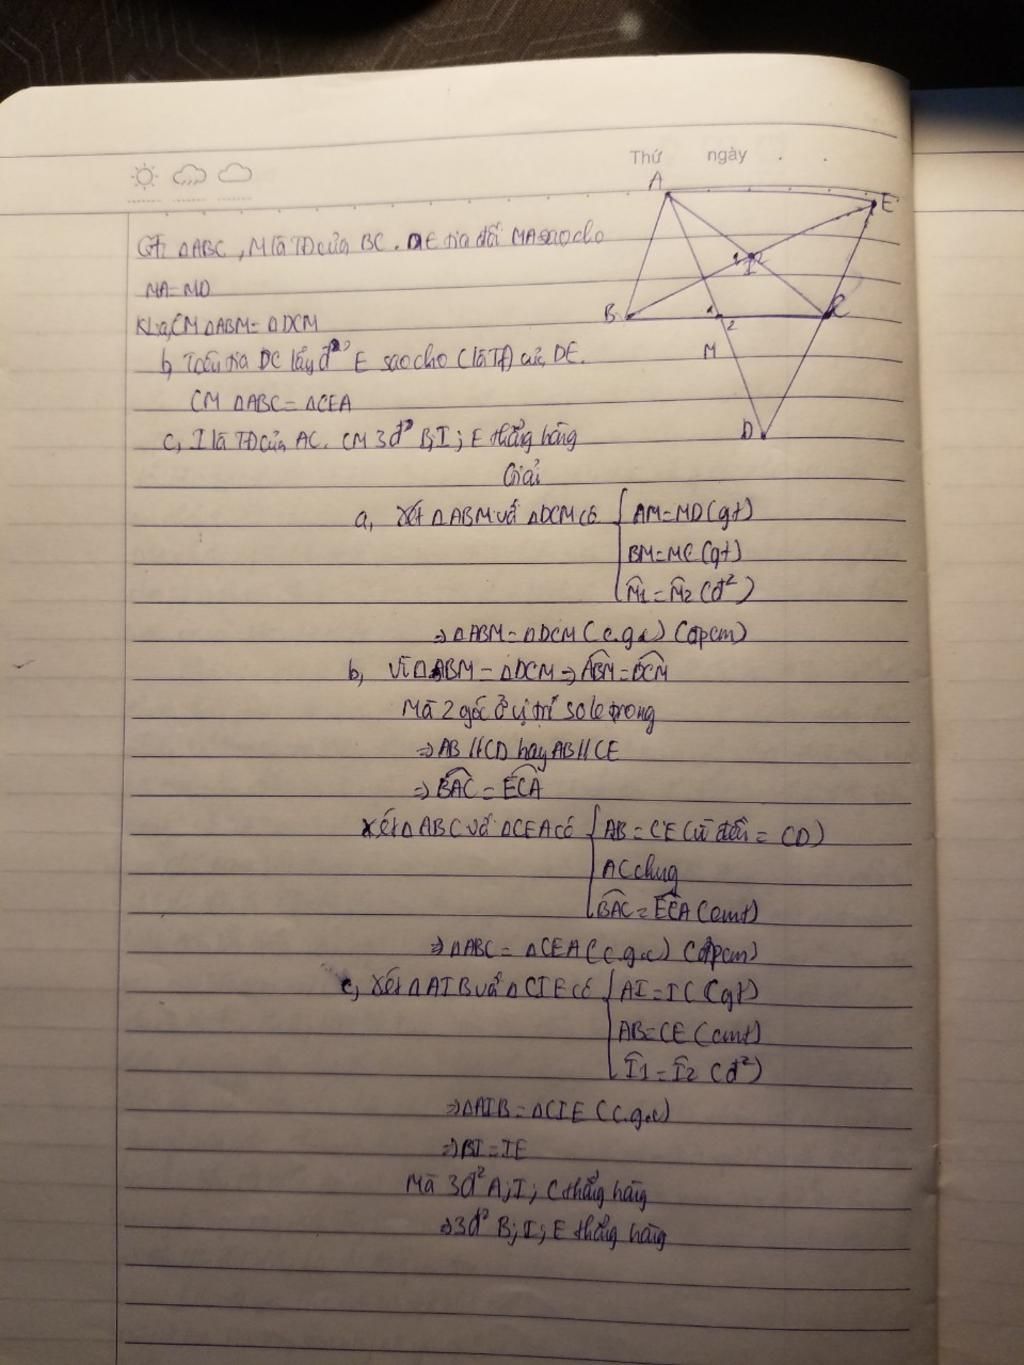 Thứ ngày . .
A
E
I
B
C
1
2
M
D
GT: △ABC, M là TĐ của BC. D∈ tia đối MA sao cho
MA=MD
KL: a, CM △ABM = △DCM
b, Trên tia DC lấy đ² E sao cho C là TĐ của DE.
CM △ABC = △CEA
c, I là TĐ của AC. CM 3đ² B; I; E thẳng hàng
Giải
a, Xét △ABM và △DCM có { AM=MD (gt)
BM=MC (gt)
M̂1 = M̂2 (đ²)
⇒ △ABM = △DCM (c.g.c) (đpcm)
b, Vì △ABM = △DCM ⇒ ABM̂ = DCM̂
Mà 2 góc ở vị trí so le trong
⇒ AB // CD hay AB // CE
⇒ BAĈ = ECÂ
Xét △ABC và △CEA có { AB = CE (vì đều = CD)
AC chug
BAĈ = ECÂ (cmt)
⇒ △ABC = △CEA (c.g.c) (đpcm)
c, Xét △AIB và △CIE có { AI = IC (gt)
AB=CE (cmt)
Î1 = Î2 (đ²)
⇒ △AIB = △CIE (c.g.c)
⇒ BI = IE
Mà 3đ² A; I; C thẳng hàng
⇒ 3đ² B; I; E thẳng hàng